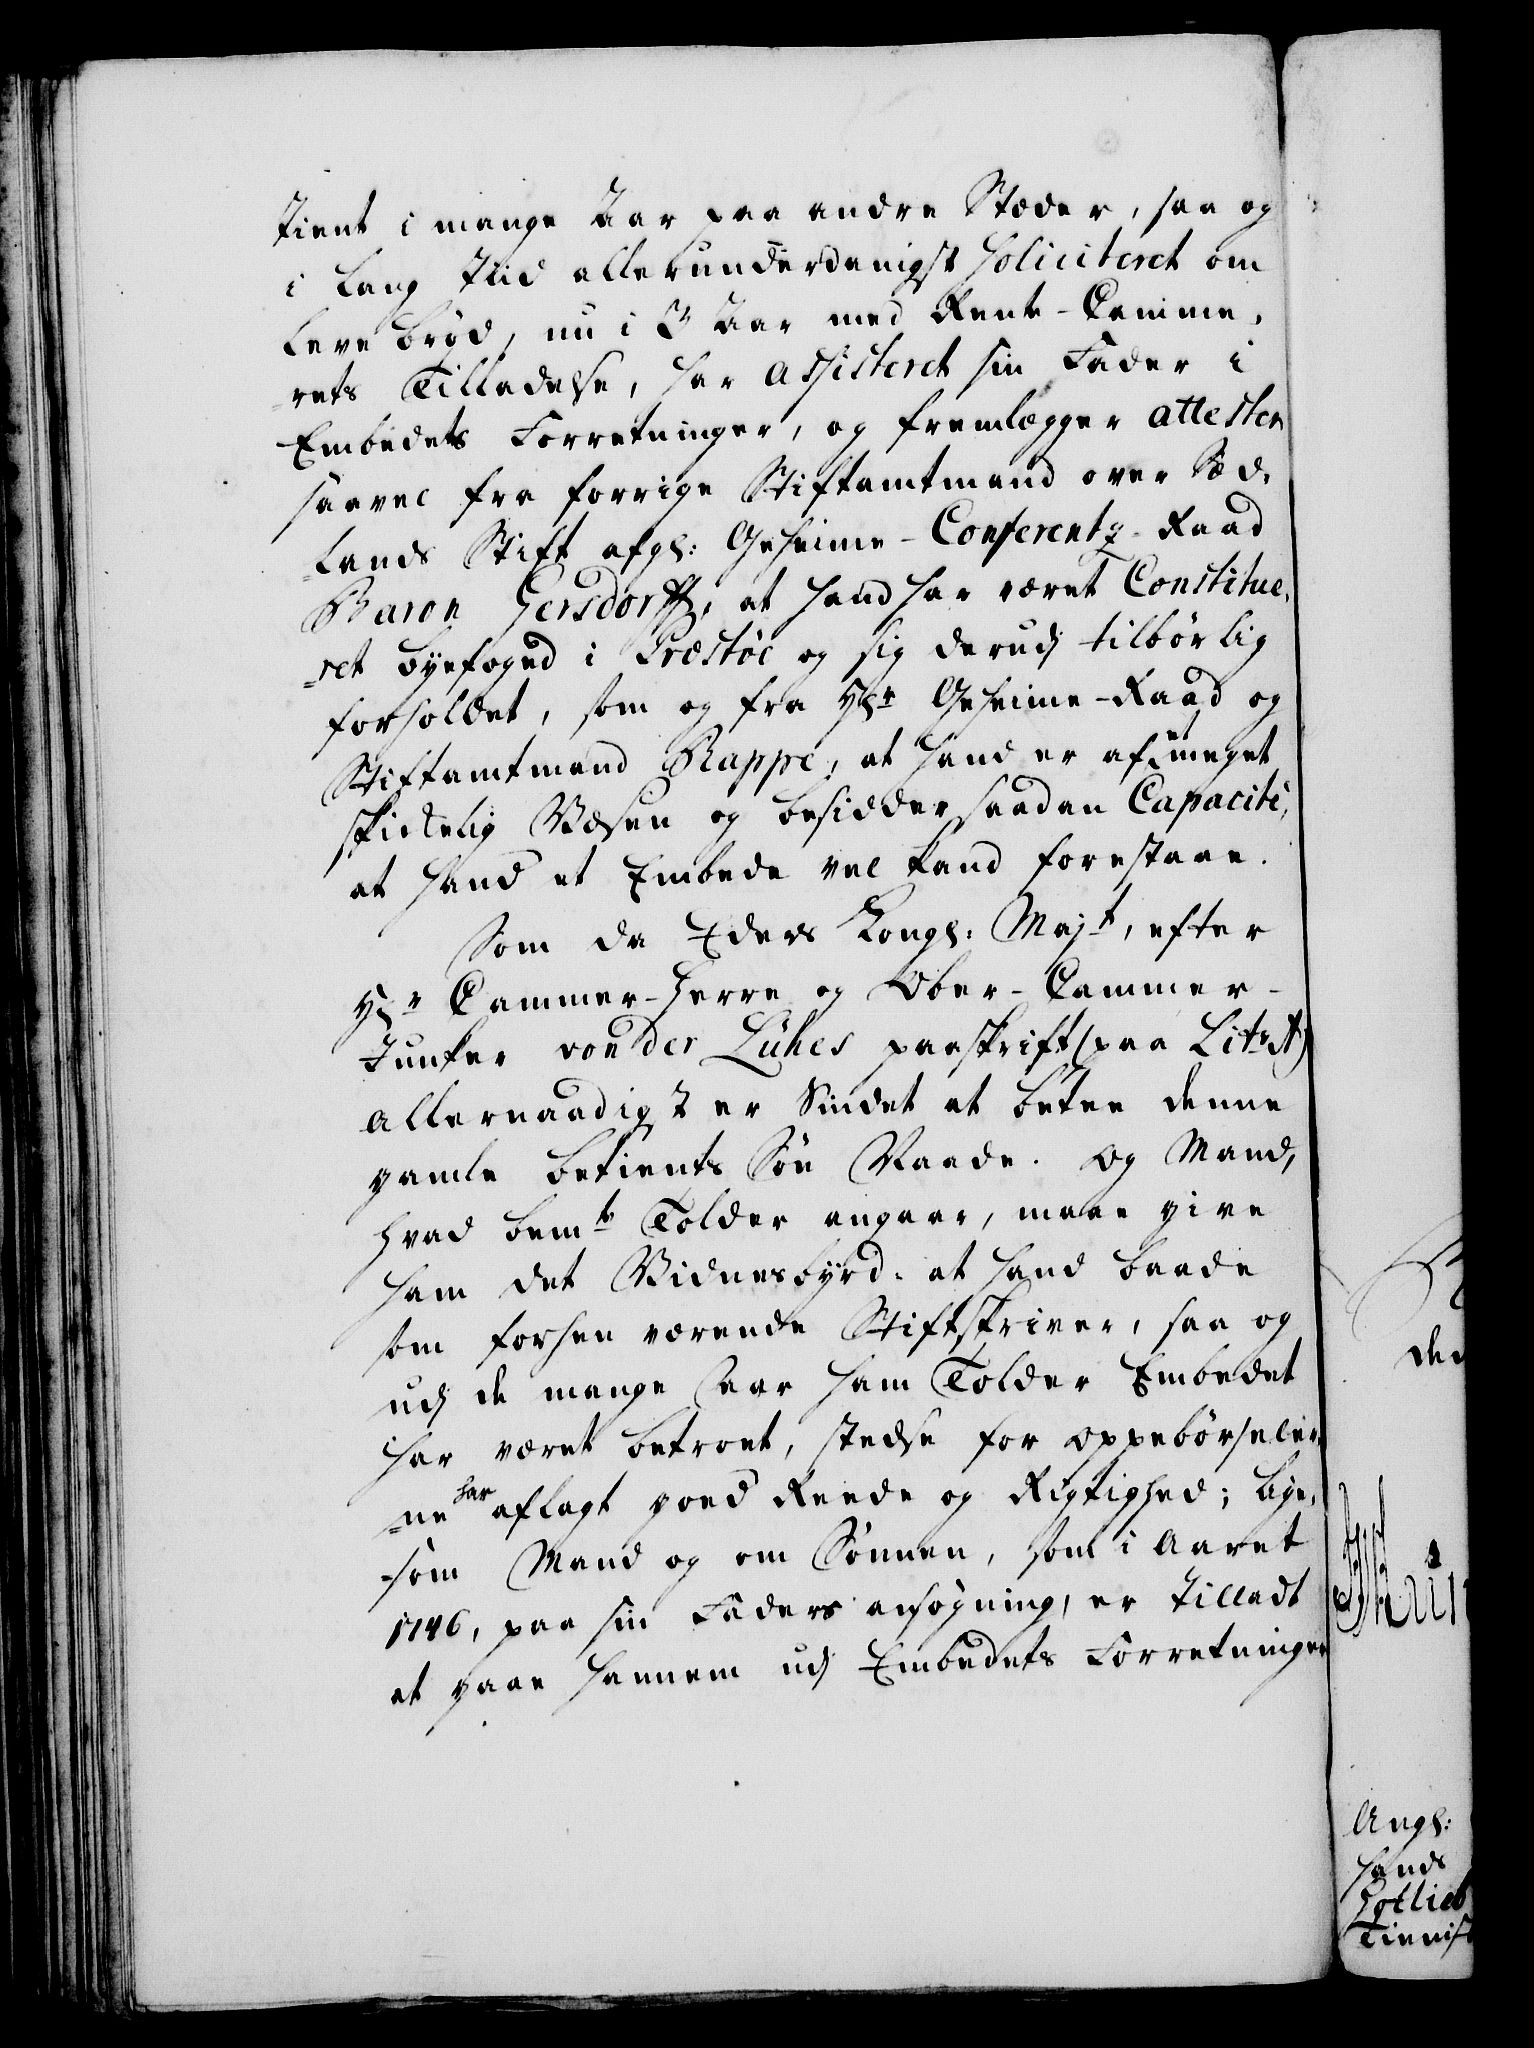 tient i mange Aar paa andre Stæder, saa og
i lang Tiid allerunderdanigst soliciteret om
Levebrød, nu i 3 Aar med Rente-Camme,
-rets Tilladelse, har assisteret sin Fader i
Embedets Forretninger, og fremlægger attester
saavel fra forrige Stiftamtmand over Siæl,
-lands Stift afg: Geheime-Conferentz-Raad
Baron Gersdorff, at hand har været Constitue,
-ret byefoged i Præstøe og sig derudj tilbørlig
forholdet, som og fra Hr Geheime-Raad og
Stiftamtmand Rappe, at hand er af meget
skickelig Væsen og besidder saadan Capacité,
at hand et Embede vel kand forestaae.
Som da Eders Kongl: Majt, efter
Hr Cammer-Herre og Ober-Cammer-
Junker von der Lühes paaskrift (paa Litr A)
allernaadigst er Sindet at betee denne
gamle betients Søn Naade. Og Mand,
hvad bemte Tolder angaar, maae give
ham det Vidnesbyrd. at hand baade
som forhen værende Stiftskriver, saa og
udj de mange Aar ham Tolder Embedet
har været betroet, stedse for Oppebørseler,
-ne har aflagt goed Reede og Rigtighed; lige,
-som Mand og om Sønnen, som i Aaret
1746, paa sin Faders ansøgning, er tilladt
at gaae hannem udj Embedets Forretninger
den
Angl:
hands
Gotlieb